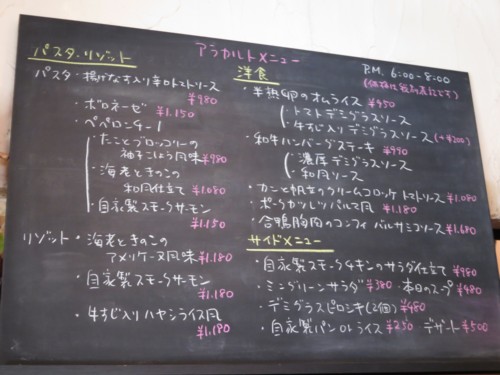 アラカルトメニュー
P.M. 6:00-8:00
パスタ・リゾット
パスタ・揚げなす入り辛口トマトソース ¥980
・ボロネーゼ ¥1,150
・ペペロンチーノ
・たことブロッコリーの
柚子こしょう風味 ¥980
・海老ときのこの
和風仕立て ¥1,080
・自家製スモークサーモン
¥1,150
リゾット・海老ときのこの
アメリケーヌ風味 ¥1,180
・自家製スモークサーモン
¥1,180
・牛すじ入りハヤシライス風
¥1,180
洋食
(価格は税別表記です)
・半熟卵のオムライス ¥950
・トマトデミグラスソース
・牛すじ入りデミグラスソース (+¥200)
・和牛ハンバーグステーキ ¥990
・濃厚デミグラスソース
・和風ソース
・カニと帆立のクリームコロッケ トマトソース ¥1,080
・ポークカツレツ パルマ風 ¥1,180
・合鴨胸肉のコンフィ バルサミコソース ¥1,680
サイドメニュー
・自家製スモークチキンのサラダ仕立て ¥980
・ミニグリーンサラダ ¥380 ・本日のスープ ¥480
・デミグラスピロシキ(2個) ¥480
・自家製パン or ライス ¥250 デザート ¥500